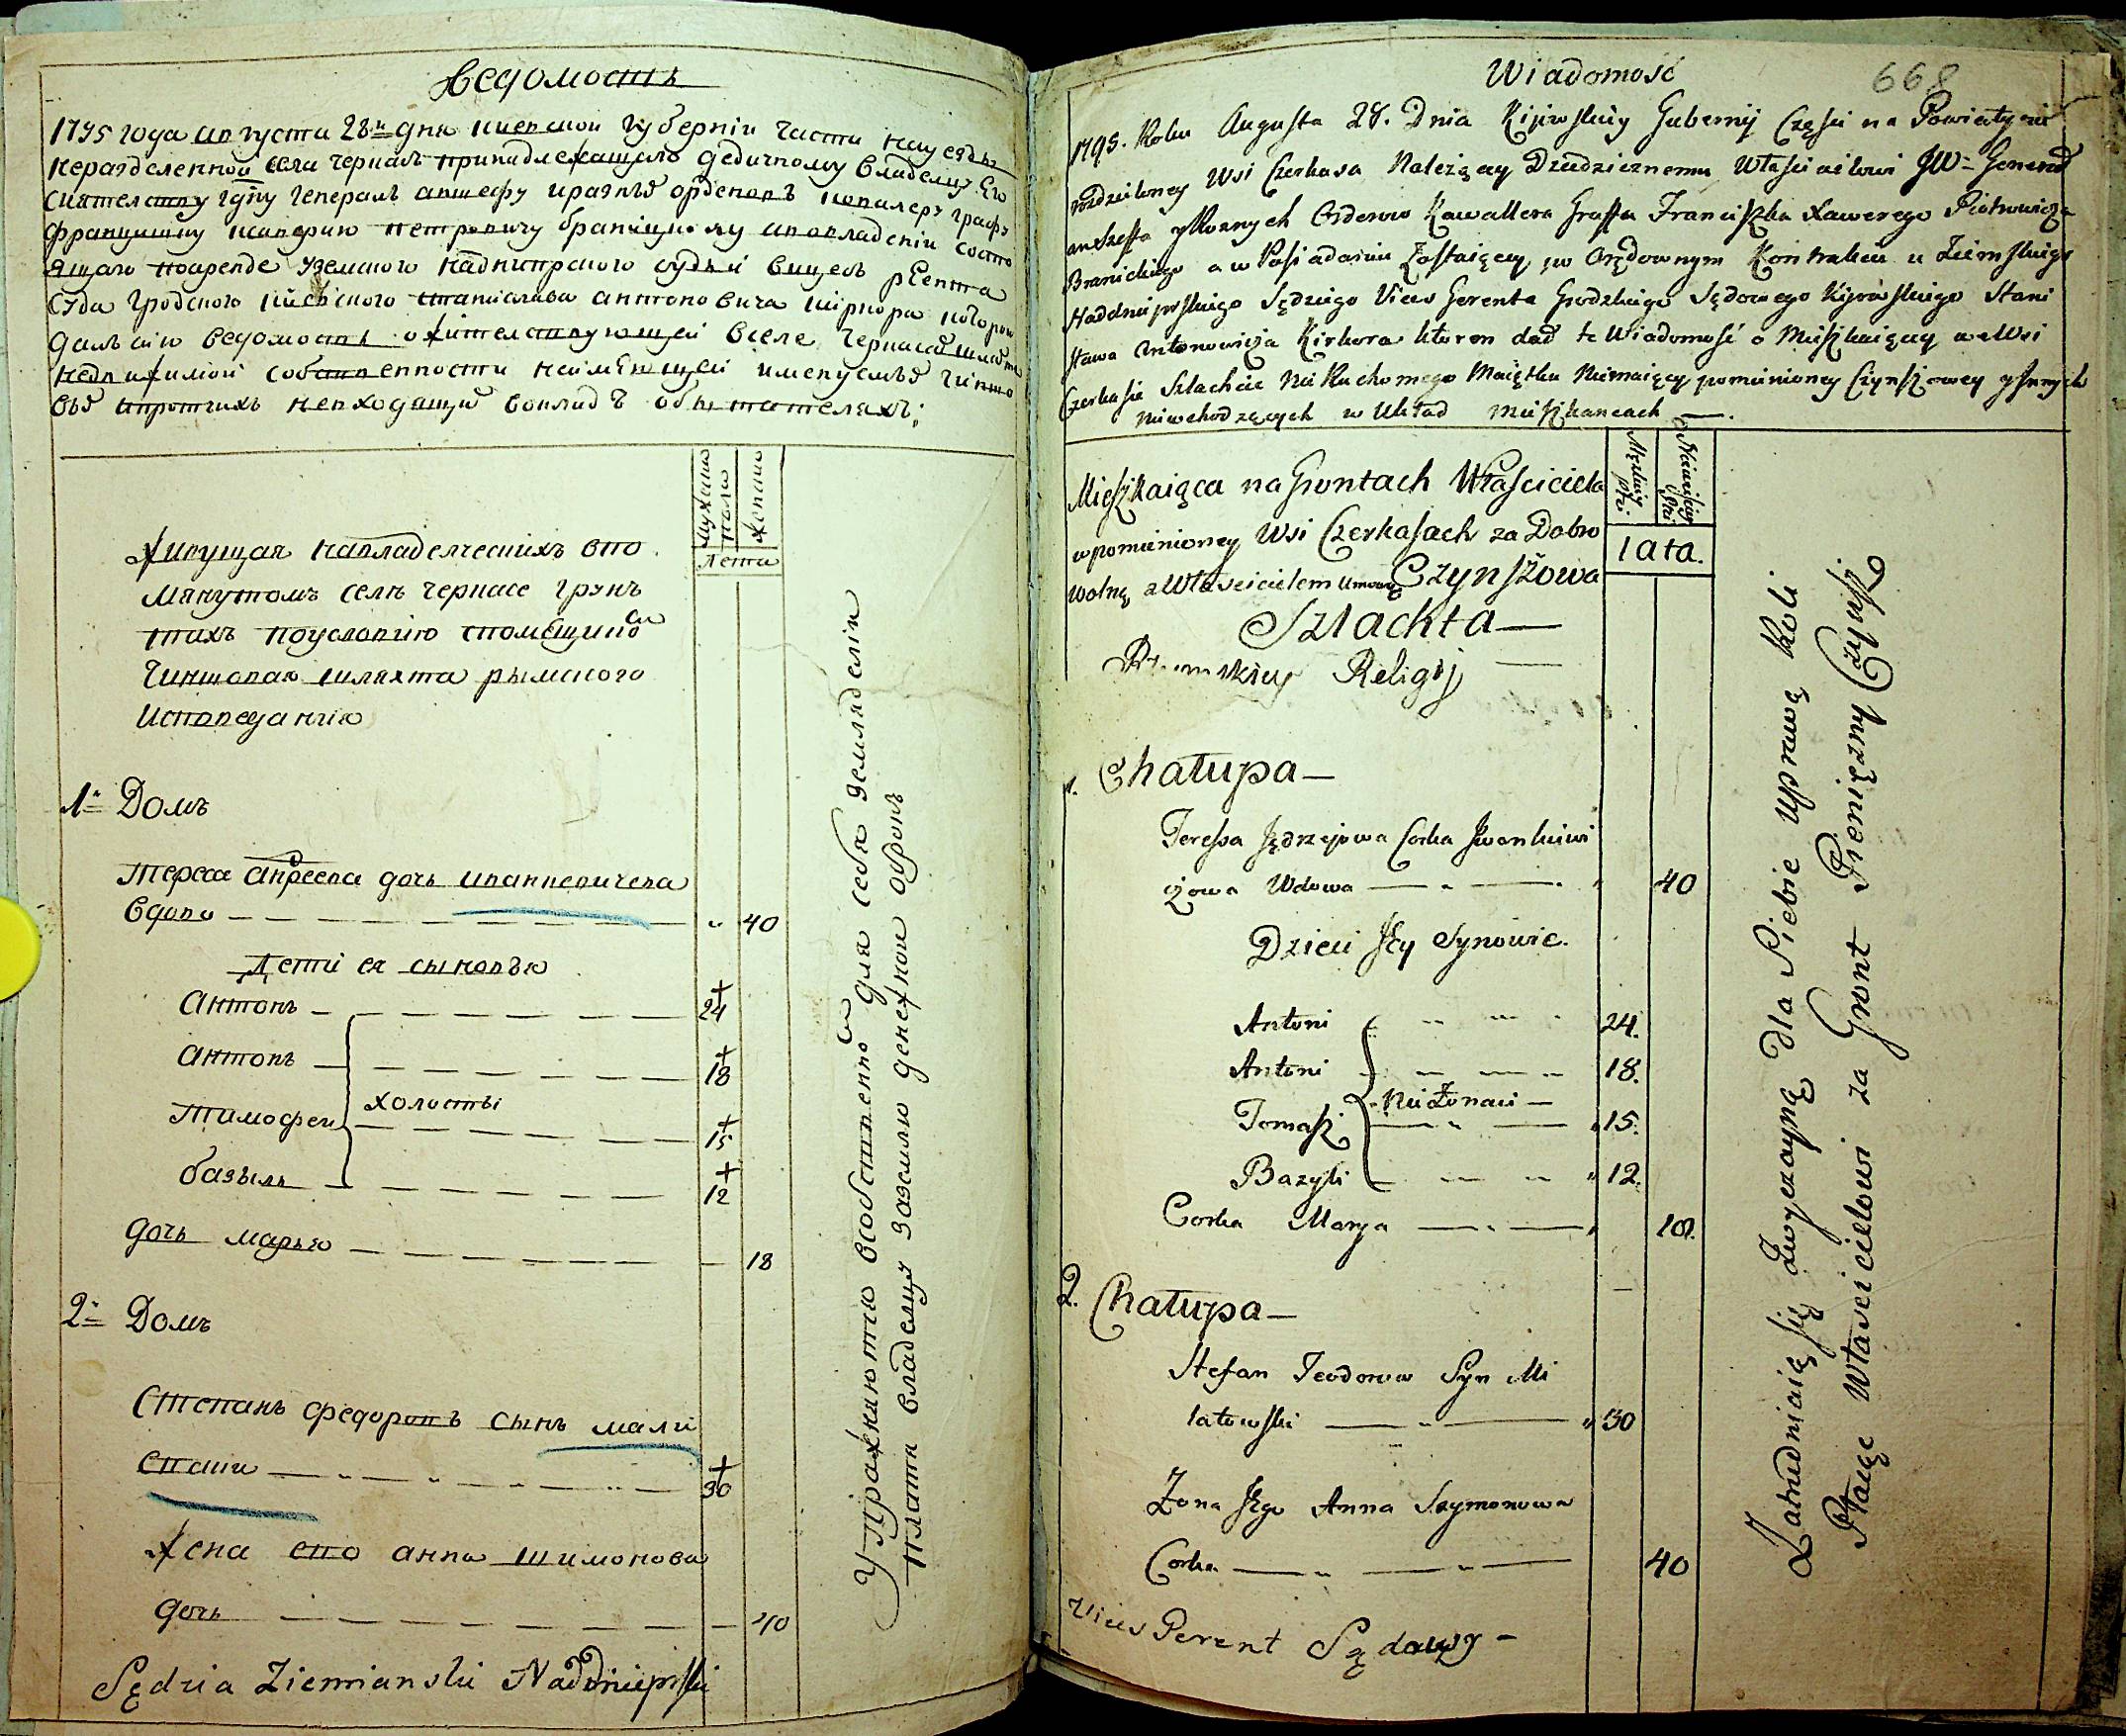 Ведомость
1795 года августа 28 дня киевской губерніи части науезды
нераzделенной села черкасъ принадлежащаго дедичному владелцу Его
Сиятелству гдну генералъ аншефу иразныхъ орденовъ кавалеру графу
францишку ксаверию петровичу браницкому авовладеніи состо
ящаго поаренде уземского надднипрского судьи вицесъ рѣента
Суда гродского кіевского станислава антоновича киркора которой
далъ сию ведомость ожителствующей вселе черкасе шляхте
недвижимой собственности неимеющей именуемъй чиншо
вый ипротчихъ невходящий вокладъ обывателяхъ:
Мужеска
пола
женска
Лета
Живущая навладелческихъ впо
мянутомъ селе черкасе грун
тахъ поусловию спомещико
Чиншовая шляхта рымского
Исповеданія
1й Домъ
тереса андреева дочь иванкевичева
вдова 40
Дети ея сыновья
антонъ 24
антонъ 18
холосты
тимофей 15
базыль 12
дочь марья 18
2й Домъ
Степанъ федоровъ сынъ мали
вски 30
жена ево анна шимонова
дочь 40
Sędzia Ziemianski Naddnieprski
Упражняются вособственной для себя земляделіи
платя владелцу заземлю денежной оброкъ
Wiadomość
668
1795. Roku Augusta 28. Dnia Kijowskiey Gubernij Części na Powiaty nie
rozdzieloney Wsi Czerkasa Należącey Dziedzicznemu Właścicielowi JW. Generał
anszeffa y Roznych Orderow Kawallera Graffa Franciszka Xawerego Piotrowicza
Branickiego a w Posiadaniu Zostaiącey w Orędownym Kontrakcie u Ziemskiego
Naddnieprskiego Sędziego Vices Gerenta Grodzkiego Sędowego Kijowskiego Stani
sława Antonowicza Kirkora ktoren dał te Wiadomość o Mieszkaiącey we Wsi
Czerkasie Szlachcie Nie Ruchomego Maiątku Niemaiącey pomienioney Czynszowey y Innych
Niewchodzących w Układ Mieszkancach
Męskiey
Płci
Niewieściey
Płci
lata.
Mieszkaiąca na Grontach Właściciela
wpomienioney Wsi Czerkasach za Dobro
wolną z Właścicielem Umową Czynszowa
Szlachta
Rzymskiey Religij
1. Chałupa
Teressa Jędrzejowa Corka Jwankiewi
czowa Wdowa 40
Dzieci Jey Synowie.
Antoni 24.
Antoni 18.
Nie Żonaci
Tomasz 15.
Bazyli 12.
Corka Marya 18.
2. Chałupa
Stefan Teodorow Syn Mi
latowski 30
Żona Jego Anna Szymonowa
Corka 40
Vices Gerent Sądowy
Zatrudniaią się Zwyczayną dla Siebie Uprawą Roli
Płacąc Właścicielowi za Gront Pieniężny Czynsz